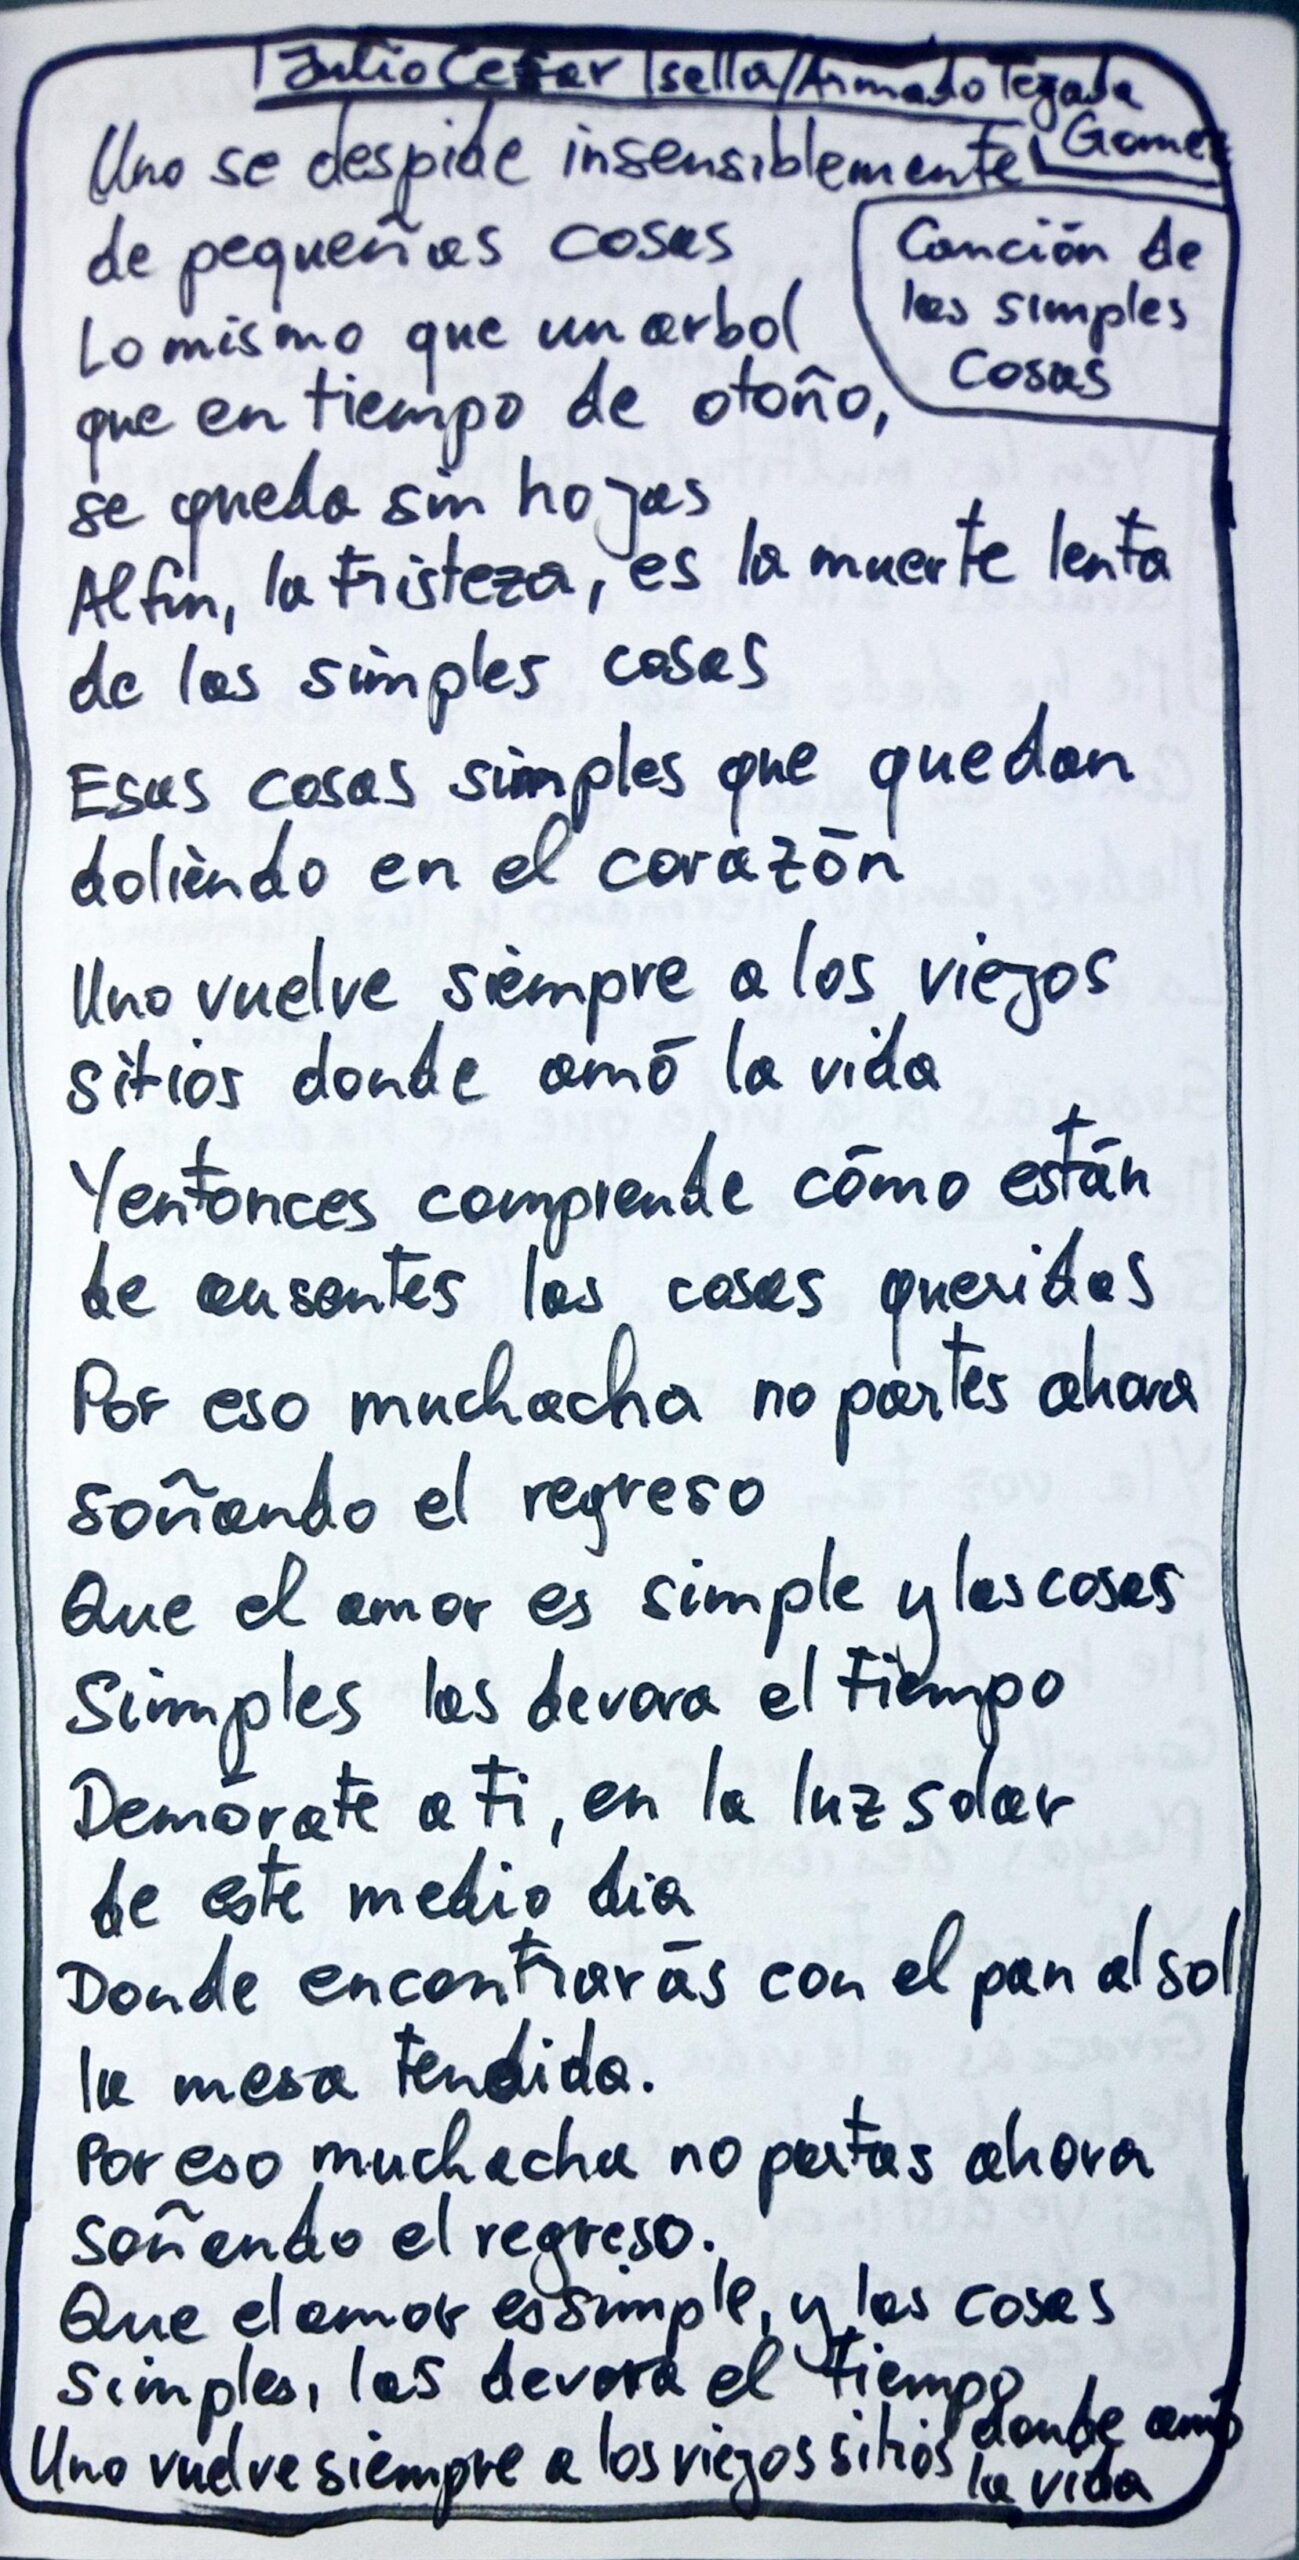 Julio Cesar Isella/Armado Tegada
Gomez
Canción de
las simples
cosas
Uno se despide insensiblemente
de pequeñas cosas
Lo mismo que un arbol
que en tiempo de otoño,
se queda sin hojas
Al fin, la tristeza, es la muerte lenta
de las simples cosas
Esas cosas simples que quedan
doliendo en el corazón
Uno vuelve siempre a los viejos
sitios donde amó la vida
Y entonces comprende cómo están
de ausentes las cosas queridas
Por eso muchacha no partes ahora
soñando el regreso
Que el amor es simple y las cosas
Simples las devora el tiempo
Demórate a ti, en la luz solar
de este medio dia
Donde encontrarás con el pan al sol
la mesa tendida.
Por eso muchacha no partas ahora
soñando el regreso.
Que el amor es simple, y las cosas
simples, las devora el tiempo
Uno vuelve siempre a los viejos sitios donde amó
la vida